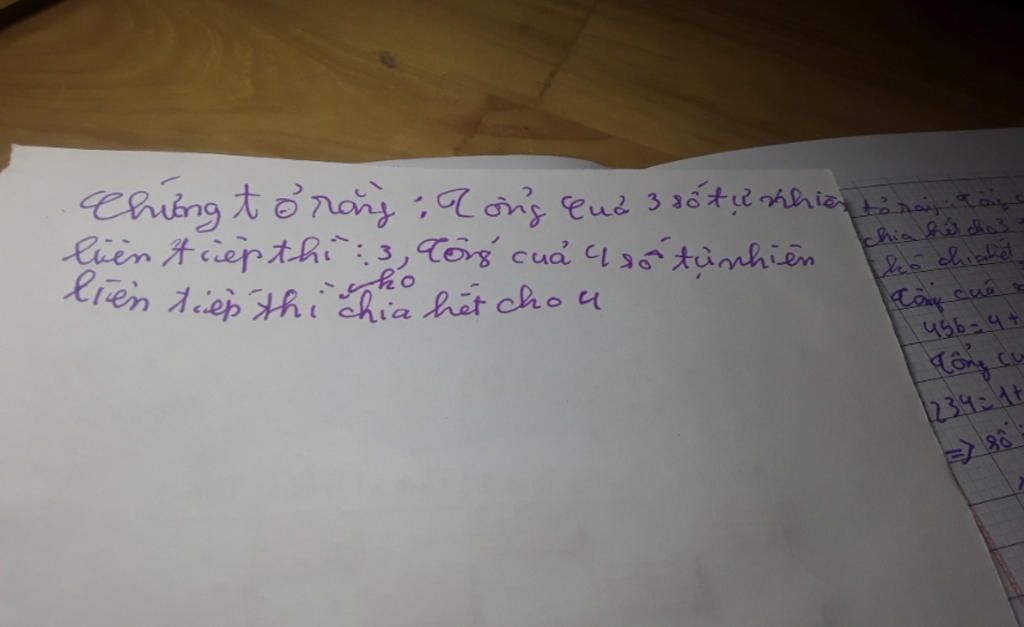 Chứng tỏ rằng : Tổng quả 3 số tự nhiên
liên tiếp thì ⋮ 3, Tổng cuả 4 số tự nhiên
liên tiếp thì ko chia hết cho 4
tỏ rằng: Tổng
chia hết cho 3
ko chia hết
Tổng cuả
456 = 4 +
Tổng cu
234 = 1 +
=> số